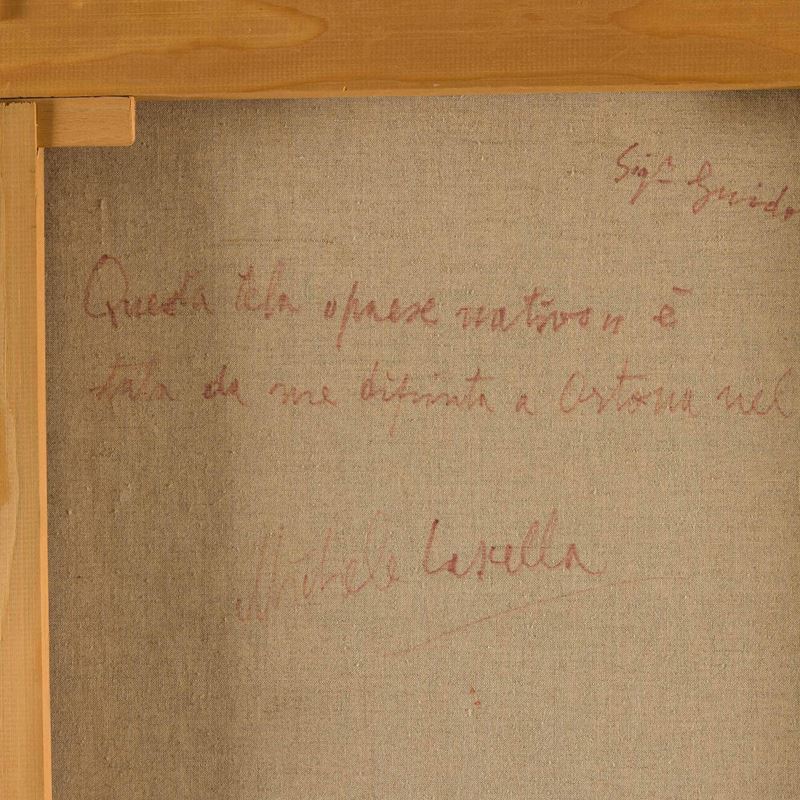 Sigr Guido
Questa tela "paese nativo" è
stata da me dipinta a Ortona nel
Michele Cascella